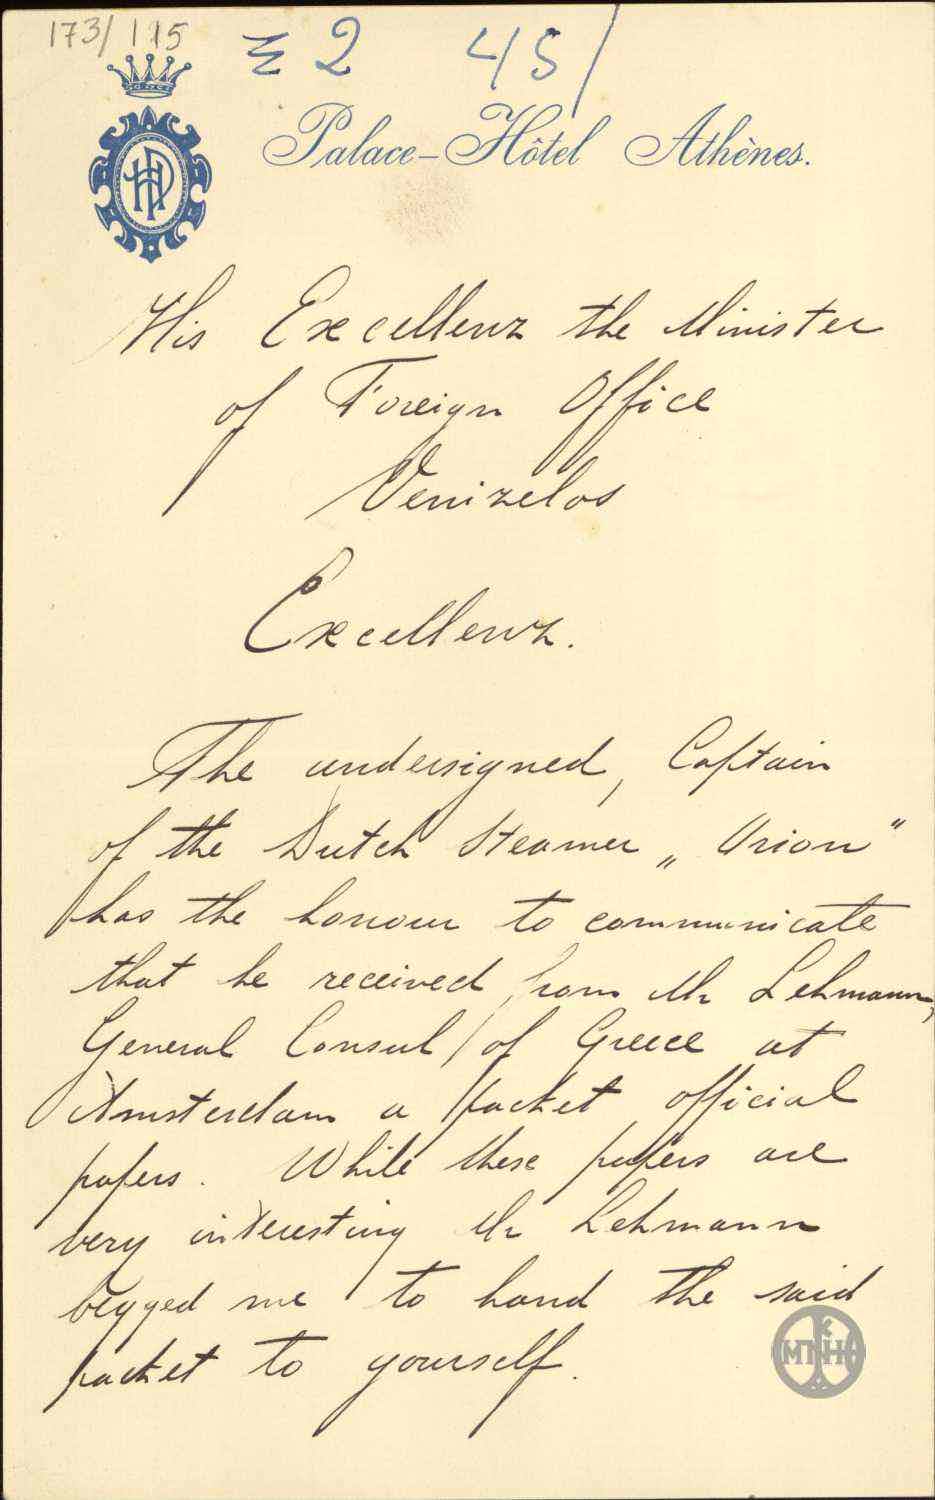 173/115
Σ 2 45/
HP
Palace-Hôtel Athènes.
His Excellenz the Minister
of Foreign Office
Venizelos
Excellenz.
The undersigned, Captain
of the Dutch Steamer „Orion"
has the honour to communicate
that he received from Mr Lehmann,
General Consul of Greece at
Amsterdam a packet official
papers. While these papers are
very interesting Mr Lehmann
begged me to hand the said
packet to yourself.